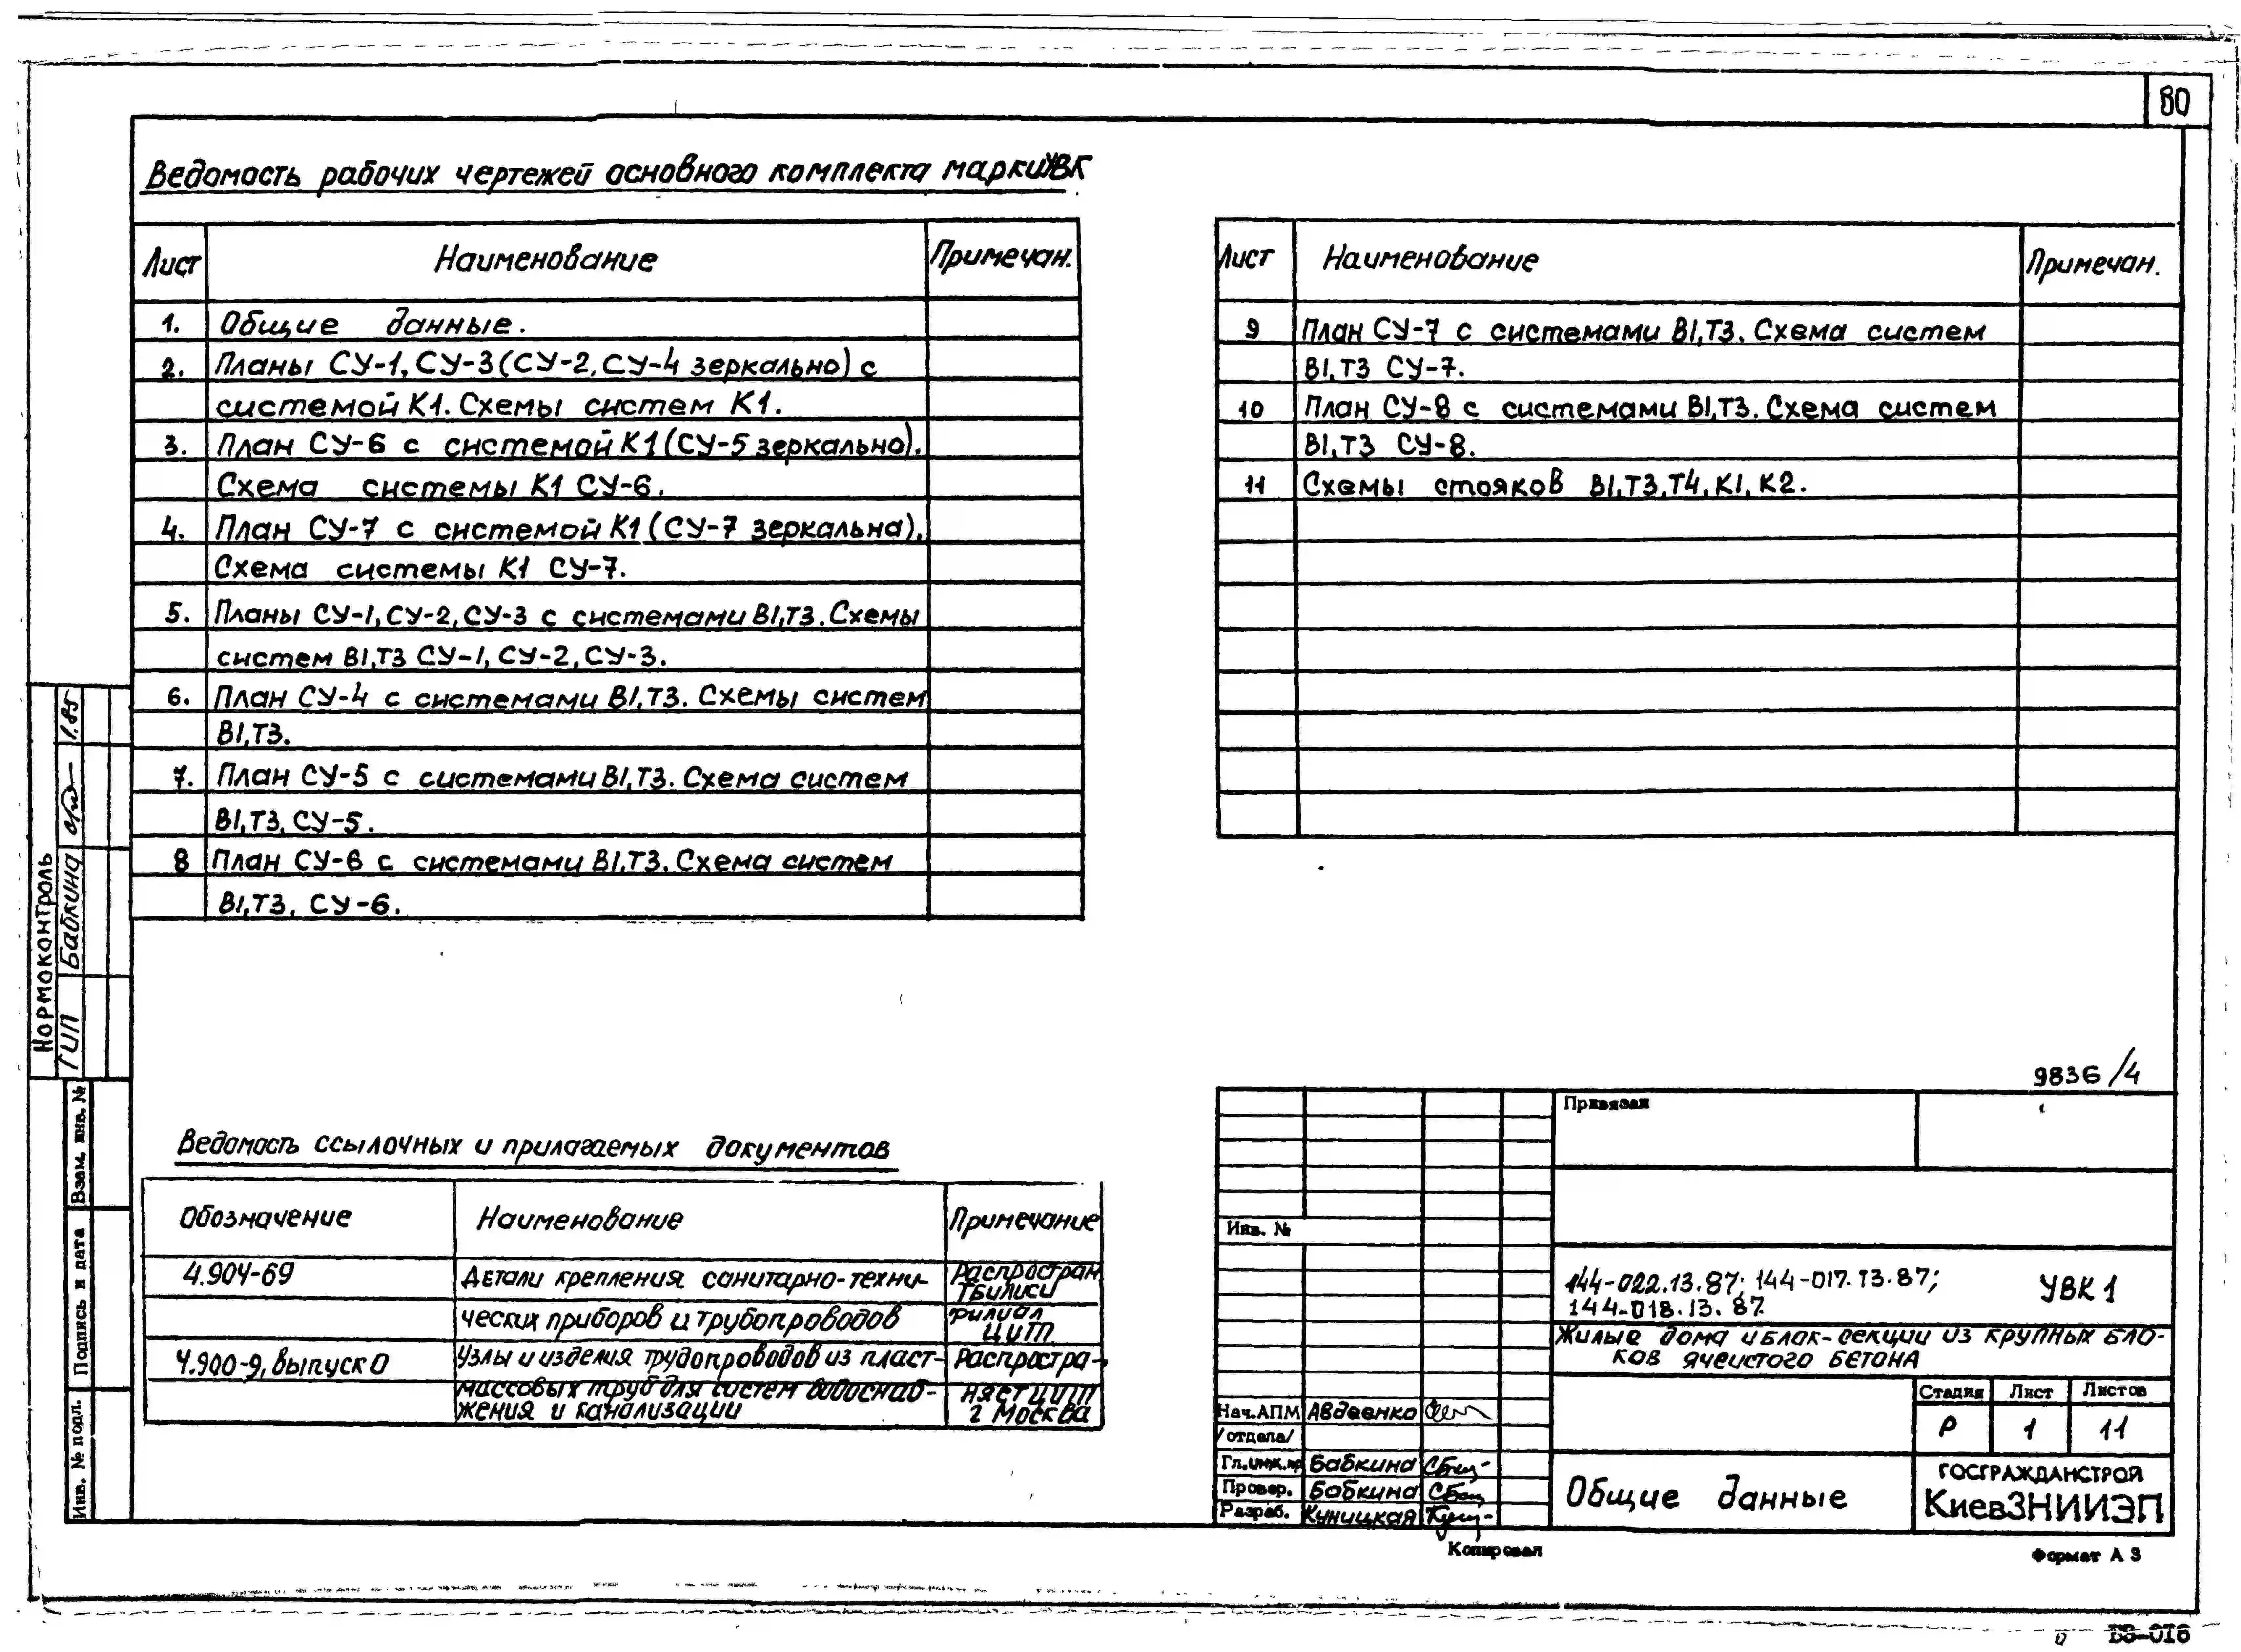 80
Ведомость рабочих чертежей основного комплекта марки УВК
Лист Наименование Примечан.
1. Общие данные.
2. Планы СУ-1, СУ-3 (СУ-2, СУ-4 зеркально) с
системой К1. Схемы систем К1.
3. План СУ-6 с системой К1 (СУ-5 зеркально).
Схема системы К1 СУ-6.
4. План СУ-7 с системой К1 (СУ-7 зеркальна).
Схема системы К1 СУ-7.
5. Планы СУ-1, СУ-2, СУ-3 с системами В1,Т3. Схемы
систем В1,Т3 СУ-1, СУ-2, СУ-3.
6. План СУ-4 с системами В1,Т3. Схемы систем
В1,Т3.
7. План СУ-5 с системами В1,Т3. Схема систем
В1,Т3, СУ-5.
8 План СУ-6 с системами В1,Т3. Схема систем
В1,Т3, СУ-6.
Лист Наименование Примечан.
9 План СУ-7 с системами В1,Т3. Схема систем
В1,Т3 СУ-7.
10 План СУ-8 с системами В1,Т3. Схема систем
В1,Т3 СУ-8.
11 Схемы стояков В1,Т3,Т4,К1,К2.
Нормоконтроль
ГИП Бабкина 1.85
Взам. инв. №
Подпись и дата
Инв. № подл.
Ведомость ссылочных и прилагаемых документов
Обозначение Наименование Примечание
4.904-69 Детали крепления санитарно-техни- Распростран
Тбилиси
ческих приборов и трубопроводов филиал
ЦИТП
4.900-9, выпуск 0 Узлы и изделия трубопроводов из пласт- Распростра-
массовых труб для систем водоснаб- няет ЦИТП
жения и канализации г Москва
9836/4
Привязан
Инв. №
144-022.13.87; 144-017.13.87; УВК 1
144-018.13.87
Жилые дома и блок-секции из крупных бло-
ков ячеистого бетона
Стадия Лист Листов
Р 1 11
Нач.АПМ Авдеенко
/отдела/
Гл.инж.пр Бабкина
Провер. Бабкина
Разраб. Куницкая
Общие данные
ГОСГРАЖДАНСТРОЙ
КиевЗНИИЭП
Копировал
Формат А 3